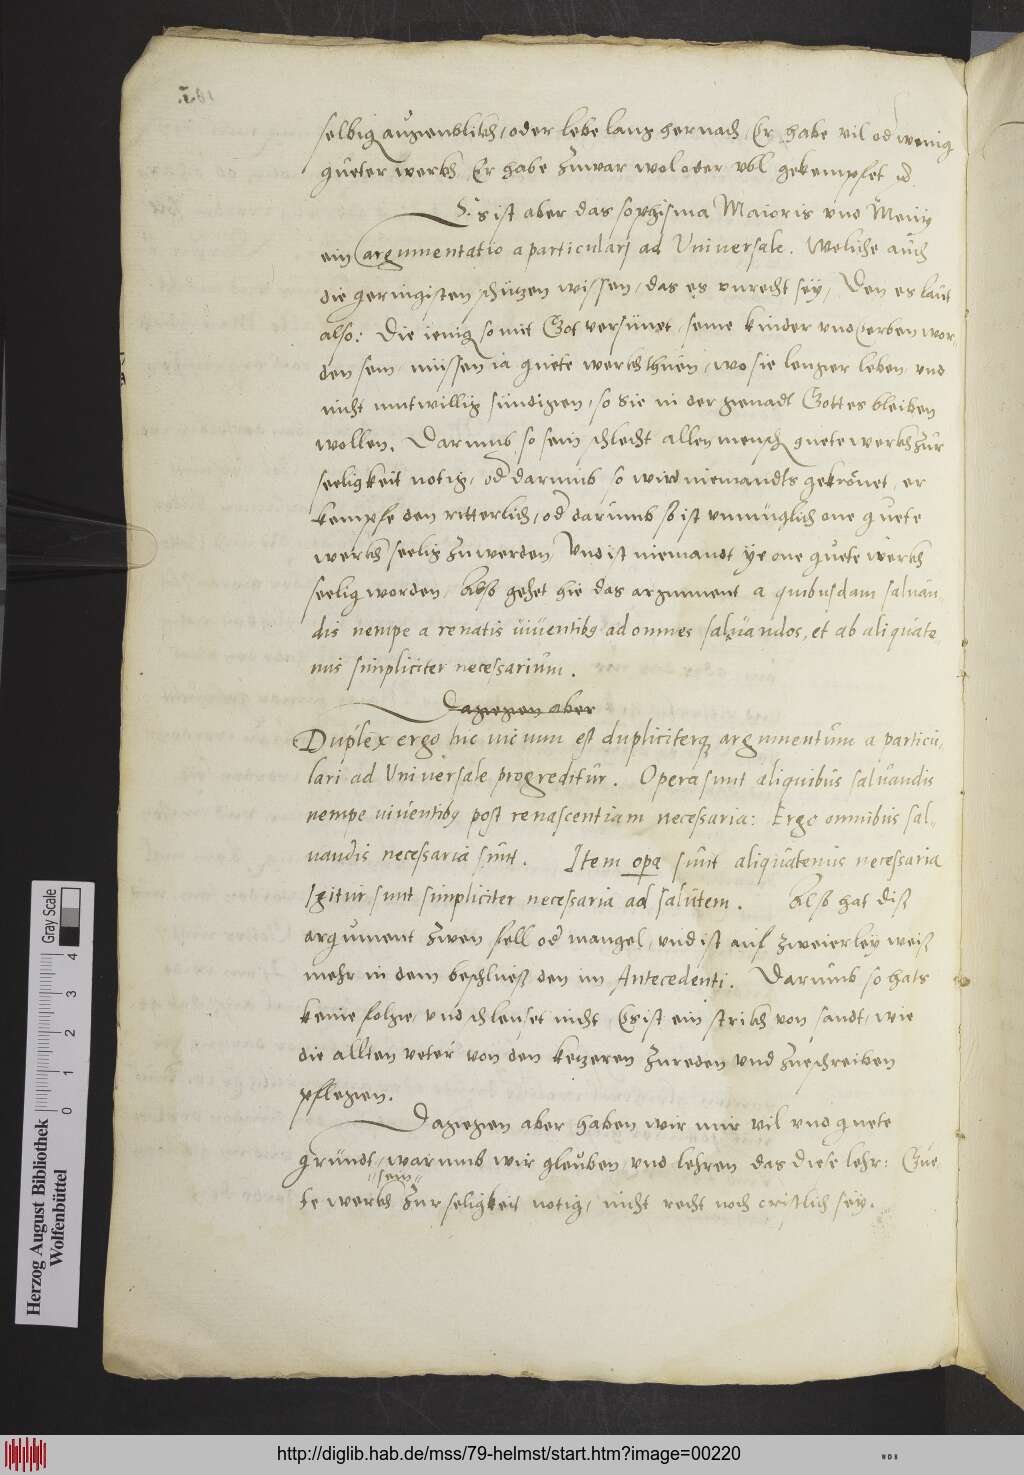 selbig augenblickh, oder lebe lang hernach, Er habe vil od wenig
gueter werckh, Er habe zuwar wol oder vbl gekempfet
Es ist aber das sophisma Maioris vnd Menij
ein argumentatio a particularj ad Vniuersale. Weliche auch
die geringisten schützen wissen, das es vnrecht sey, Den es laut
also: Die ienig so mit Got versünet, seine kinder vnd erben wor,
den sein, müssen ia guete werckh thuen, wo sie lenger leben, vnd
nicht mutwillig sündigen, so sie in der genadt Gottes bleiben
wollen. Darumb so sein schlecht allen mensch guete werckh zur
seeligkeit notig, od darumb so wird niemandts gekrönet, er
kempfe den ritterlich, od darumb so ist vnmüglich one guete
werckh seelig zu werden Vnd ist niemandt ye one guete werckh
seelig worden, Also gehet hie das argument a quibusdam saluan,,
dis nempe a renatis uiuentibus ad omnes saluandos, et ab aliquate,,
nus simpliciter necessarium.
Dagegen aber
Duplex ergo hic uicium est dupliciterque argumentum a particu,,
lari ad Vniuersale progreditur. Opera sunt aliquibus saluandis
nempe uiuentibus post renascentiam necessaria: Ergo omnibus sal,,
uandis necessaria sunt. Item opera sunt aliquatenus necessaria
Igitur sunt simpliciter necessaria ad salutem. Also hat diß
argument zwen fell od mangel, vnd ist auf zweierley weiß
mehr in dem beschlueß den im Antecedenti. Darumb so hats
keine folge, vnd schleuset nicht, Es ist ein strikh von sandt, wie
die allten veter von den ketzeren zureden vnd zueschreiben
pflegen.
Dagegen aber haben wir nur vil vnd guete
gründt, warumb wir gleuben vnd lehren das diese lehr: Gue,
,,sein,,
te werckh zur seligkeit notig, nicht recht noch cristlich sey.
Herzog August Bibliothek
Wolfenbüttel
0 1 2 3 4
Gray Scale
http://diglib.hab.de/mss/79-helmst/start.htm?image=00220
WDB